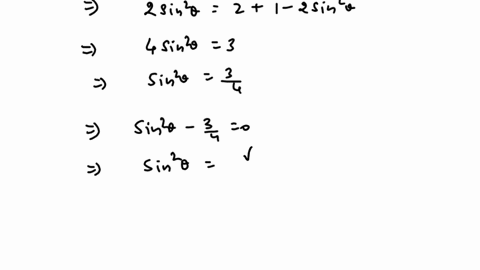 =) 2sin²θ = 2 + 1 - 2sin²θ
=) 4sin²θ = 3
=) sin²θ = 3/4
=) sin²θ - 3/4 = 0
=) sin²θ = √